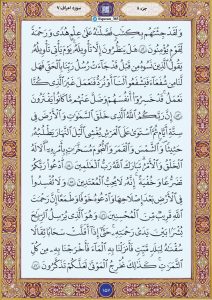 جزء ۸
سوره اعراف ۷
وَلَقَدْ جِئْنَٰهُم بِكِتَٰبٍ فَصَّلْنَٰهُ عَلَىٰ عِلْمٍ هُدًى وَرَحْمَةً
لِّقَوْمٍ يُؤْمِنُونَ ۝٥٢ هَلْ يَنظُرُونَ إِلَّا تَأْوِيلَهُۥ يَوْمَ يَأْتِى تَأْوِيلُهُۥ
يَقُولُ ٱلَّذِينَ نَسُوهُ مِن قَبْلُ قَدْ جَآءَتْ رُسُلُ رَبِّنَا بِٱلْحَقِّ فَهَل
لَّنَا مِن شُفَعَآءَ فَيَشْفَعُوا۟ لَنَآ أَوْ نُرَدُّ فَنَعْمَلَ غَيْرَ ٱلَّذِى كُنَّا
نَعْمَلُ ۚ قَدْ خَسِرُوٓا۟ أَنفُسَهُمْ وَضَلَّ عَنْهُم مَّا كَانُوا۟ يَفْتَرُونَ
۝٥٣ إِنَّ رَبَّكُمُ ٱللَّهُ ٱلَّذِى خَلَقَ ٱلسَّمَٰوَٰتِ وَٱلْأَرْضَ فِى
سِتَّةِ أَيَّامٍ ثُمَّ ٱسْتَوَىٰ عَلَى ٱلْعَرْشِ يُغْشِى ٱلَّيْلَ ٱلنَّهَارَ يَطْلُبُهُۥ
حَثِيثًا وَٱلشَّمْسَ وَٱلْقَمَرَ وَٱلنُّجُومَ مُسَخَّرَٰتٍۭ بِأَمْرِهِۦٓ ۗ أَلَا لَهُ
ٱلْخَلْقُ وَٱلْأَمْرُ ۗ تَبَارَكَ ٱللَّهُ رَبُّ ٱلْعَٰلَمِينَ ۝٥٤ ٱدْعُوا۟ رَبَّكُمْ
تَضَرُّعًا وَخُفْيَةً ۚ إِنَّهُۥ لَا يُحِبُّ ٱلْمُعْتَدِينَ ۝٥٥ وَلَا تُفْسِدُوا۟
فِى ٱلْأَرْضِ بَعْدَ إِصْلَٰحِهَا وَٱدْعُوهُ خَوْفًا وَطَمَعًا ۚ إِنَّ رَحْمَتَ
ٱللَّهِ قَرِيبٌ مِّنَ ٱلْمُحْسِنِينَ ۝٥٦ وَهُوَ ٱلَّذِى يُرْسِلُ ٱلرِّيَٰحَ
بُشْرًۢا بَيْنَ يَدَىْ رَحْمَتِهِۦ ۖ حَتَّىٰٓ إِذَآ أَقَلَّتْ سَحَابًا ثِقَالًا
سُقْنَٰهُ لِبَلَدٍ مَّيِّتٍ فَأَنزَلْنَا بِهِ ٱلْمَآءَ فَأَخْرَجْنَا بِهِۦ مِن كُلِّ
ٱلثَّمَرَٰتِ ۚ كَذَٰلِكَ نُخْرِجُ ٱلْمَوْتَىٰ لَعَلَّكُمْ تَذَكَّرُونَ ۝٥٧
۱۵۷